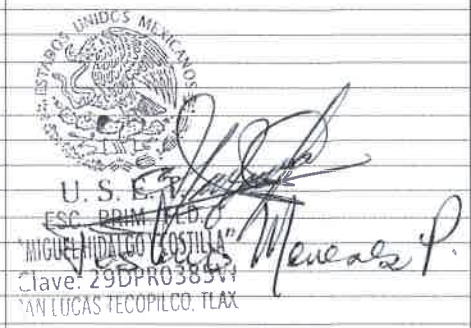 ESTADOS UNIDOS MEXICANOS
U. S. E. T.
ESC. PRIM. FED.
"MIGUEL HIDALGO Y COSTILLA"
Meneses P.
Clave: 29DPR0385V
SAN LUCAS TECOPILCO, TLAX